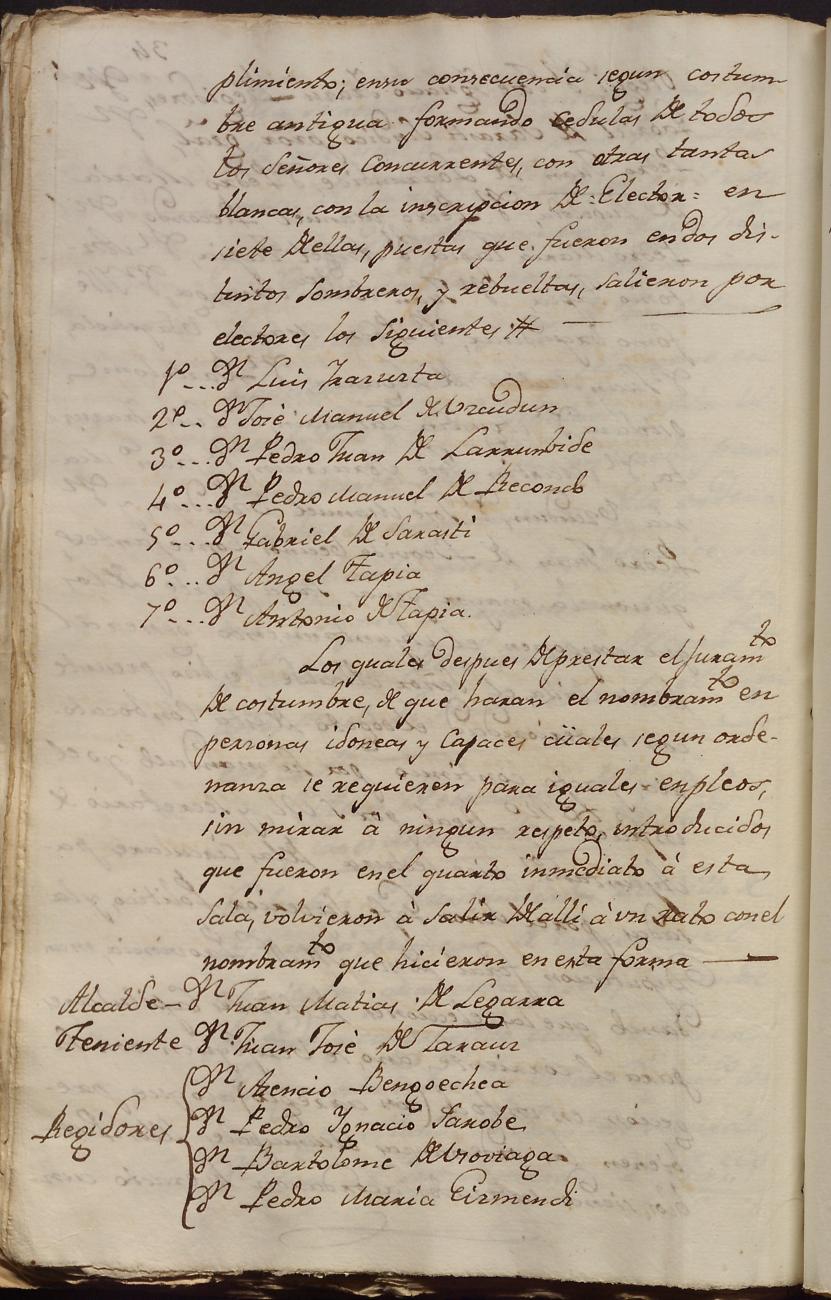 plimiento; ensu consecuencia segun costum-
bre antigua formando Cedulas de todos
los Señores Concurrentes, con otras tantas
blancas, con la inscripcion de =Elector= en
siete dellas, puestas que fueron endos dis-
tintos Sombreros, y rebueltas, salieron por
electores los Siguientes #
1º... Dn Luis
2º... Dn Josè Manuel de Urcudun
3º... Dn Pedro Juan de Larrumbide
4º... Dn Pedro Manuel de Recondo
5º... Dn Gabriel de Sarasti
6º... Dn Angel Tapia
7º... Dn Antonio de Tapia.
Los quales despues de prestar el juramto
de costumbre, de que haran el nombramto en
personas idoneas y capaces cüales segun orde-
nanza se requieren para iguales enpleos,
sin mirar à ningun respeto, introducidos
que fueron en el quarto inmediato à esta
Sala, volvieron à salir de alli à un rato con el
nombramto que hicieron en esta forma —
Alcalde — Dn Juan Matias de Legarra
Teniente Dn Juan Josè de Tarauz
Dn Asencio Bengoechea
Regidores Dn Pedro Ygnacio Janobe
Dn Bartolome de Uroviaga
Dn Pedro Maria Eizmendi